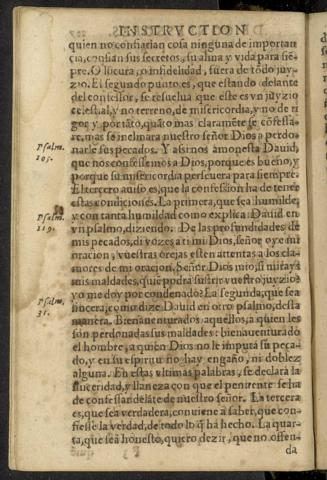 INSTRVCTION
quien no confiarian cosa ninguna de importan
cia, confian sus secretos, su alma y vida para siē-
pre. O locura, o infidelidad, fuera de todo juy-
zio. El segundo punto es, que estando delante
del confessor, se resuelua que este es vn juyzio
celestial, y no terreno, de misericordia, y no de ri
gor y por tāto, quāto mas claramēte se cōfessa-
re, mas se inclinara nuestro señor Dios a perdo-
Psalm. 105.
narle sus pecados. Y assi nos amonesta Dauid,
que nos confessemos a Dios, porque es bueno, y
porque su misericordia perseuera para siempre.
El tercero auiso es, que la confession ha de tener
estas condiciones. La primera, que sea humilde,
Psalm. 119.
y con tanta humildad como explica Dauid en
vn psalmo, diziendo. De las profundidades de
mis pecados, di vozes a ti mi Dios, señor oye mi
oracion, vuestras orejas esten attentas a los cla-
mores de mi oracion. Señor Dios mio, si mirays
mis maldades, quiē podra sufrir vuestro juyzio?
Psalm. 31.
yo me doy por condenado? La segunda, que sea
sincera, como dize Dauid en otro psalmo, desta
manera. Bienauenturados aquellos, a quien les
son perdonadas sus maldades: bienauenturado
el hombre, a quien Dios no le imputa su peca-
do, y en su espiritu no hay engaño, ni doblez
alguna. En estas vltimas palabras, se declara la
sinceridad, y llaneza con que el penitente se ha
de confessar delāte de nuestro señor. La tercera
es, que sea verdadera, conuiene a saber, que con-
fiesse la verdad, de todo lo q̄ ha hecho. La quar-
ta, que sea honesto, quiero dezir, que no offen-
da